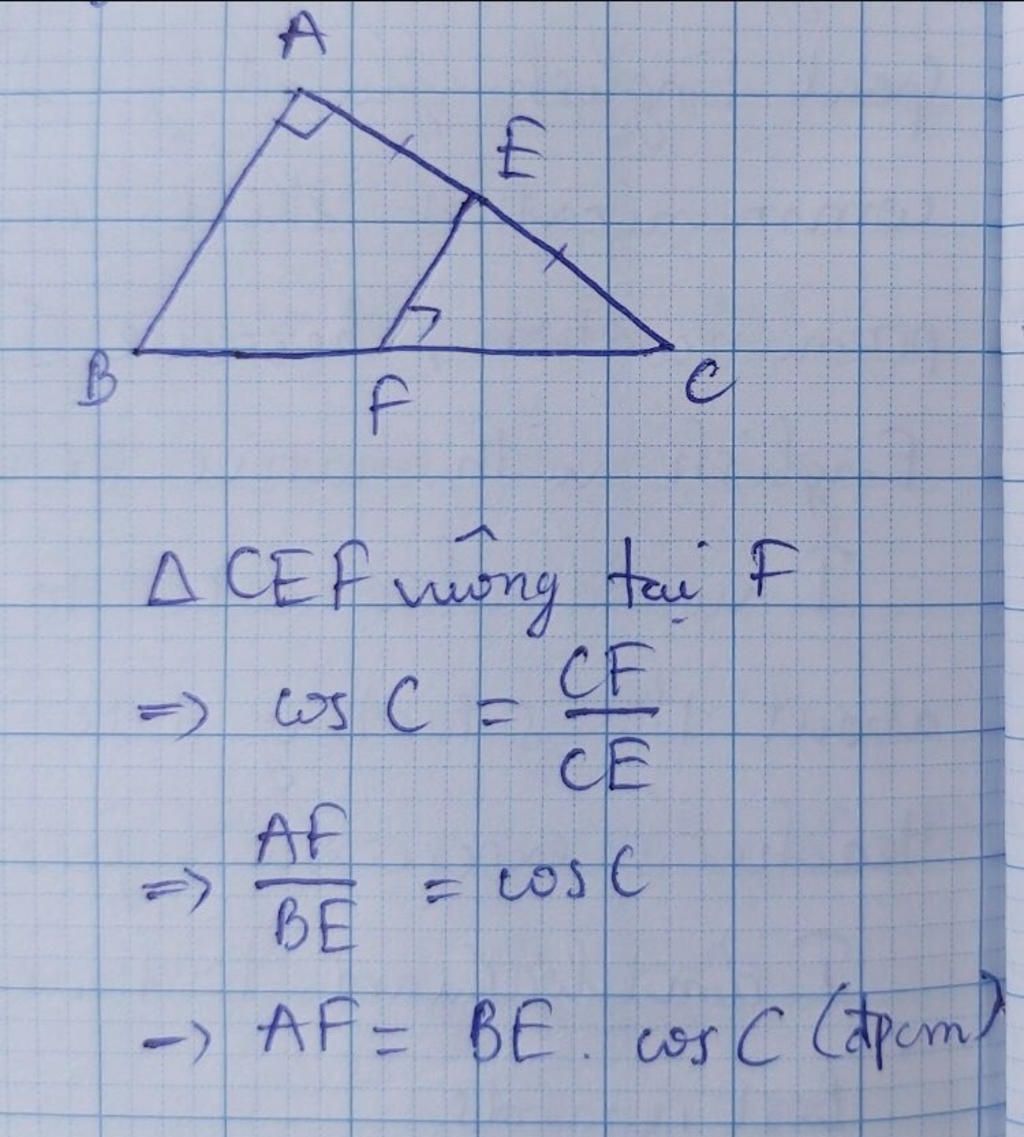 A
E
B
F
C
Δ CEF vuông tại F
=> cos C = CF/CE
=> AF/BE = cos C
-> AF = BE . cos C (đpcm)